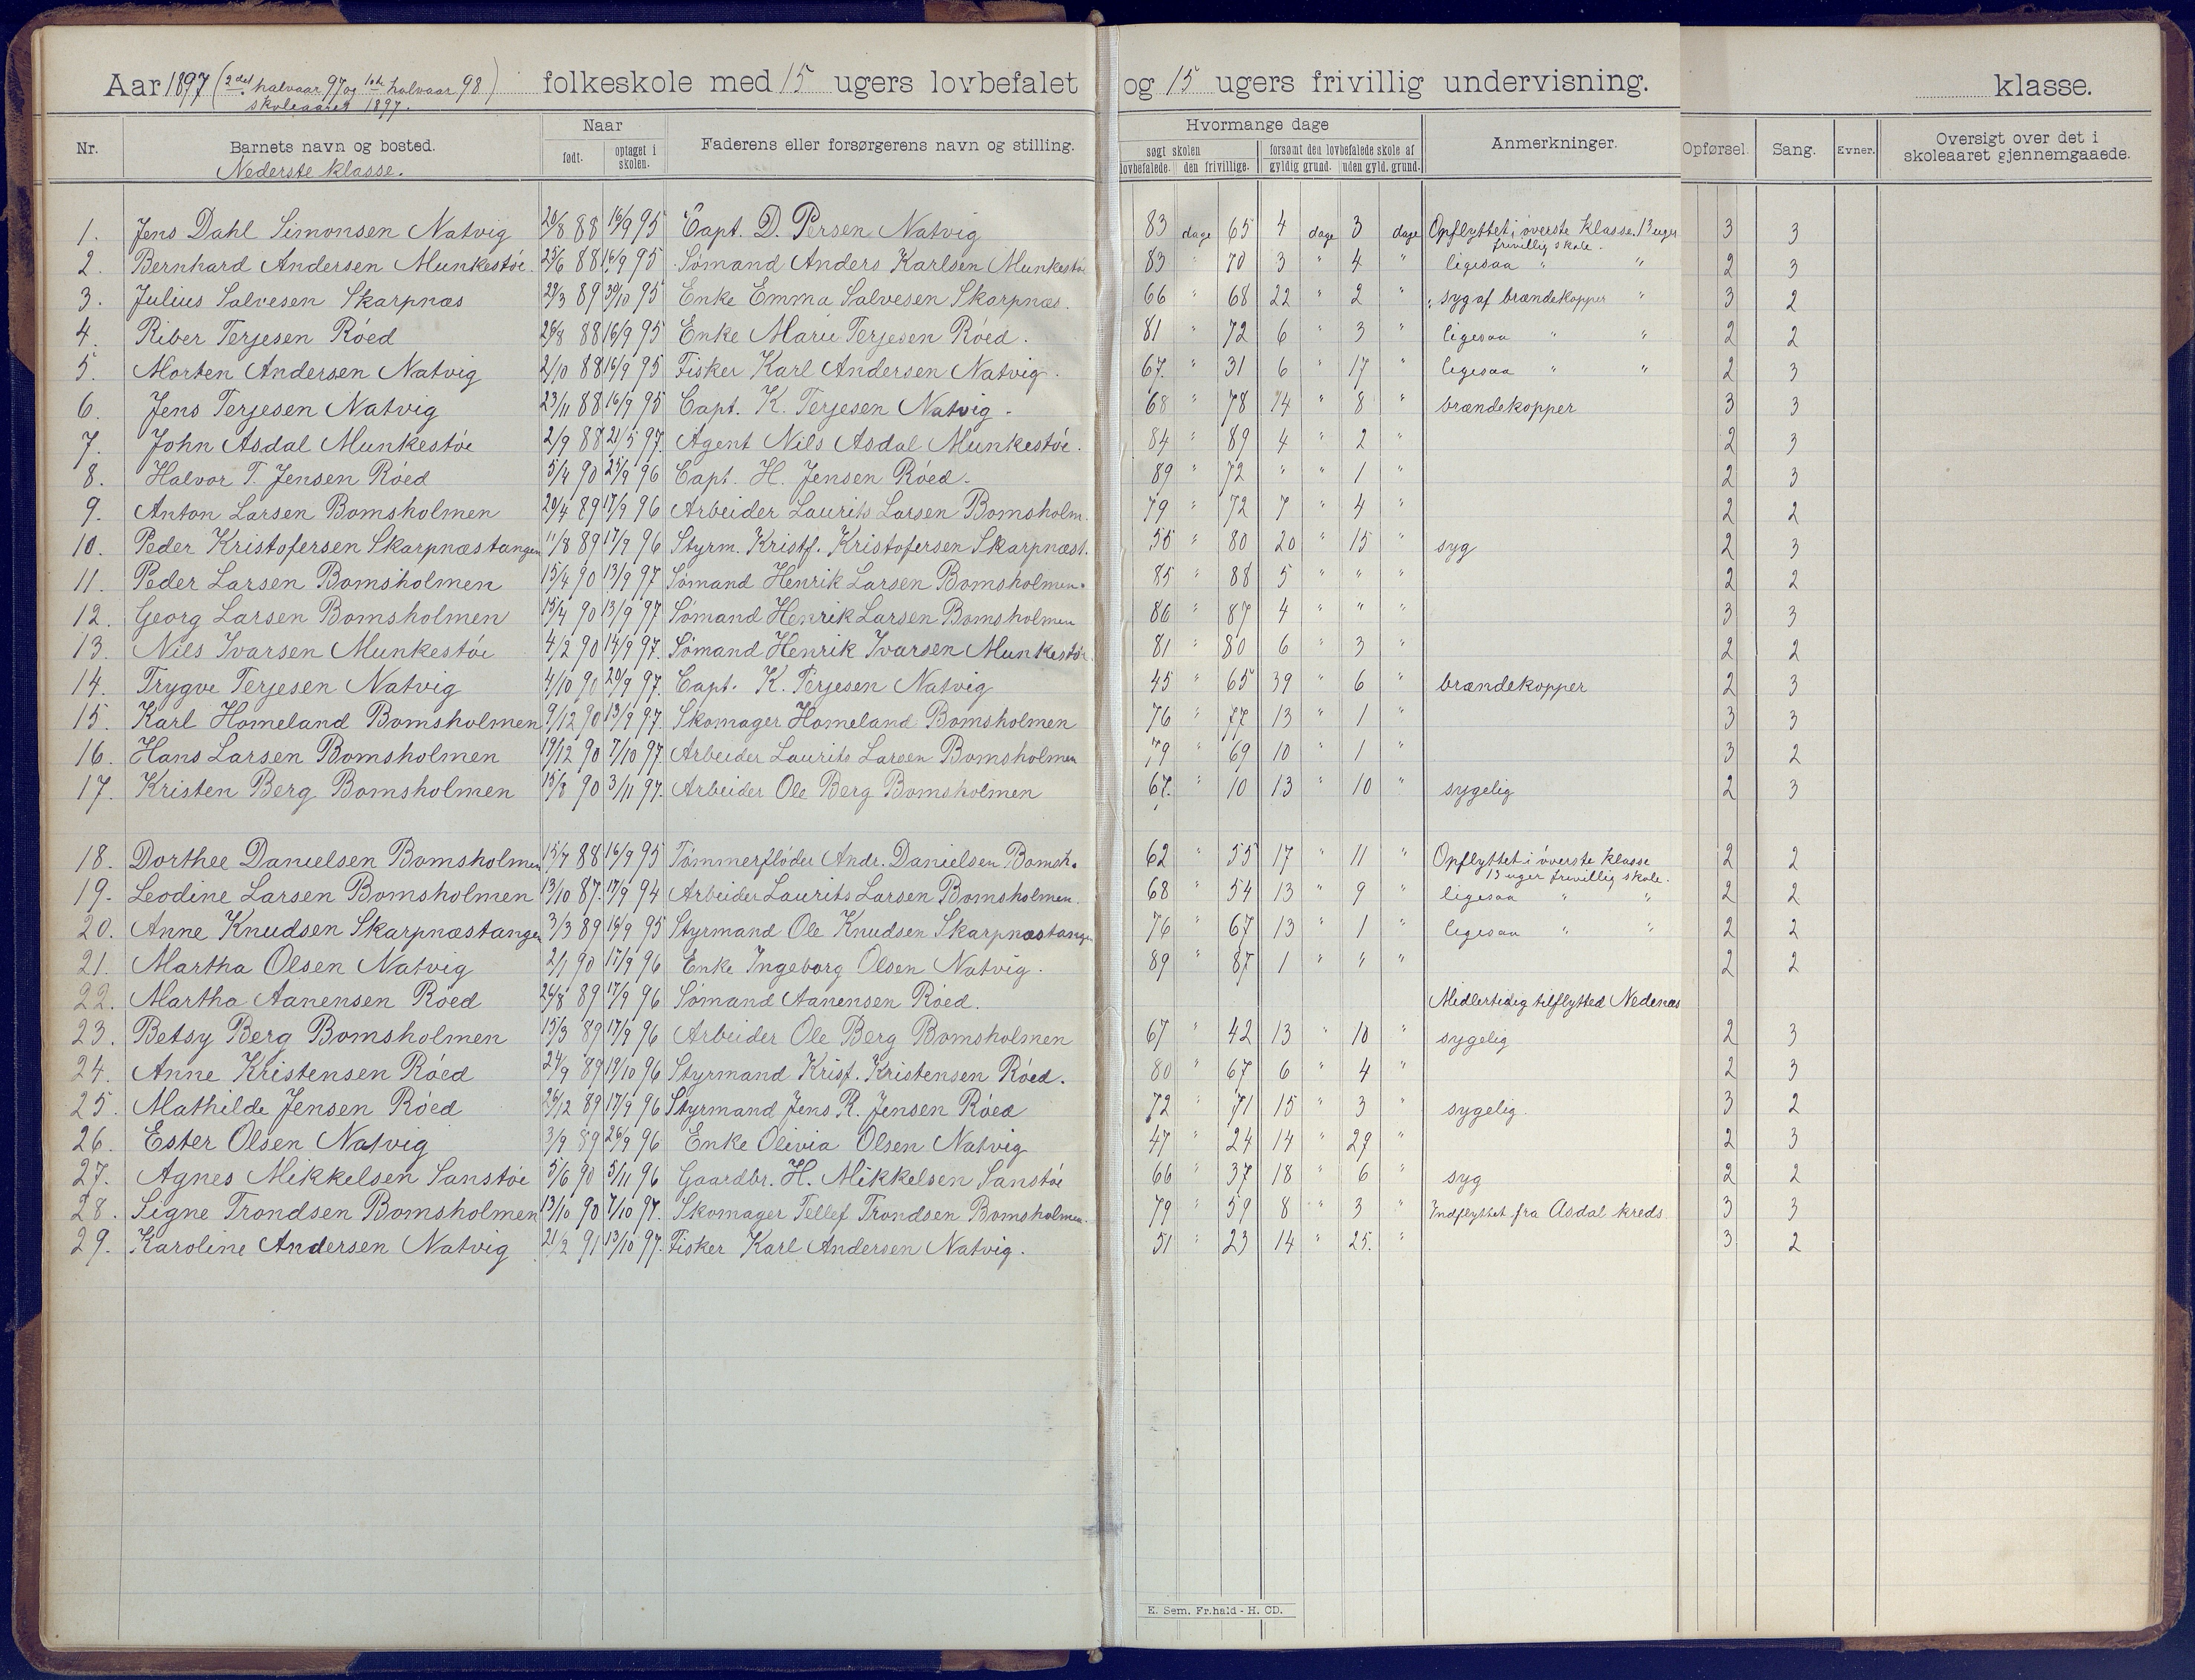 Aar 1897 (2det halvaar 97 og 1ste halvaar 98) folkeskole med 15 ugers lovbefalet og 15 ugers frivillig undervisning. klasse.
skoleaaret 1897.
Nr. Barnets navn og bosted. Naar født. optaget i skolen. Faderens eller forsørgerens navn og stilling. Hvormange dage søgt skolen lovbefalede. den frivillige. forsømt den lovbefalede skole af gyldig grund. uden gyld. grund. Anmerkninger. Opførsel. Sang. Evner. Oversigt over det i skoleaaret gjennemgaaede.
Nederste klasse.
1. Jens Dahl Simonsen Natvig 20/8 88 16/9 95 Capt. D. Persen Natvig 83 dage 65 4 dage 3 dage Opflyttet i øverste klasse. 13 uger frivillig skole. 3 3
2. Bernhard Andersen Munkestøe 25/6 88 16/9 95 Sømand Anders Karlsen Munkestø 83 " 70 3 " 4 " ligesaa " " 2 3
3. Julius Salvesen Skarpnæs 29/3 89 30/10 95 Enke Emma Salvesen Skarpnæs. 66 " 68 22 " 2 " " syg af brændekopper " 3 2
4. Riber Terjesen Røed 26/8 88 16/9 95 Enke Marie Terjesen Røed. 81 " 72 6 " 3 " ligesaa " " 2 2
5. Morten Andersen Natvig 2/10 88 16/9 95 Fisker Karl Andersen Natvig. 67. " 31 6 " 17 " ligesaa " " 2 3
6. Jens Terjesen Natvig 23/11 88 16/9 95 Capt. K. Terjesen Natvig. 68 " 78 14 " 8 " brændekopper 3 3
7. John Asdal Munkestøe 2/9 88 21/5 97. Agent Nils Asdal Munkestøe. 84 " 89 4 " 2 " 2 3
8. Halvor T. Jensen Røed 5/4 90 25/9 96 Capt. H. Jensen Røed. 89 " 72 " " 1 " 2 3
9. Anton Larsen Bomsholmen 20/4 89 17/9 96 Arbeider Laurits Larsen Bomsholm. 79 " 72 7 " 4 " 2 2
10. Peder Kristofersen Skarpnæstangen 11/8 89 17/9 96 Styrm. Kristf. Kristofersen Skarpnæst. 55 " 80 20 " 15 " syg 2 3
11. Peder Larsen Bomsholmen 15/4 90 13/9 97 Sømand Henrik Larsen Bomsholmen. 85 " 88 5 " " " 2 2
12. Georg Larsen Bomsholmen 15/4 90 13/9 97 Sømand Henrik Larsen Bomsholmen 86 " 87 4 " " " 3 3
13. Nils Ivarsen Munkestøe 4/2 90 14/9 97. Sømand Henrik Ivarsen Munkestøe. 81 " 80 6 " 3 " 2 2
14. Trygve Terjesen Natvig 4/10 90 20/9 97. Capt. K. Terjesen Natvig 45 " 65 39 " 6 " brændekopper 2 3
15. Karl Homeland Bomsholmen 9/12 90 13/9 97. Skomager Homeland Bomsholmen 76 " 77 13 " 1 " 3 3
16. Hans Larsen Bomsholmen 19/12 90 7/10 97. Arbeider Laurits Larsen Bomsholmen 79 " 69 10 " 1 " 3 2
17. Kristen Berg Bomsholmen 15/8 90 3/11 97. Arbeider Ole Berg Bomsholmen 67. " 10 13 " 10 " sygelig 2 3
18. Dorthee Danielsen Bomsholmen 15/7 88 16/9 95 Tømmerfløder Andr. Danielsen Bomsh. 62 " 55 17 " 11 " Opflyttet i øverste klasse 13 uger frivillig skole. 2 2
19. Leodine Larsen Bomsholmen 13/10 87. 17/9 94 Arbeider Laurits Larsen Bomsholmen. 68 " 54 13 " 9 " ligesaa " " 2 2
20. Anne Knudsen Skarpnæstangen 3/3 89 16/9 95 Styrmand Ole Knudsen Skarpnæstangen 76 " 67 13 " 1 " ligesaa " " 2 2
21. Martha Olsen Natvig 2/1 90 17/9 96 Enke Ingeborg Olsen Natvig. 89 " 87 1 " " " 2 2
22. Martha Aanensen Røed 26/8 89 17/9 96 Sømand Aanensen Røed. Midlertidig tilflytted Nedenæs
23. Betsy Berg Bomsholmen 15/3 89 17/9 96 Arbeider Ole Berg Bomsholmen 67 " 42 13 " 10 " sygelig 2 3
24. Anne Kristensen Røed 24/9 89 19/10 96 Styrmand Krist. Kristensen Røed. 80 " 67 6 " 4 " 2 3
25. Mathilde Jensen Røed 26/12 89 17/9 96 Styrmand Jens R. Jensen Røed 72 " 71 15 " 3 " sygelig. 3 2
26. Ester Olsen Natvig 3/9 89 26/9 96 Enke Olivia Olsen Natvig 47 " 24 14 " 29 " 2 3
27. Agnes Mikkelsen Sanstøe 5/6 90 5/11 96 Gaardbr. H. Mikkelsen Sanstøe 66 " 37 18 " 6 " syg 2 2
28. Signe Trondsen Bomsholmen 13/10 90 7/10 97. Skomager Tellef Trondsen Bomsholmen. 79 " 59 8 " 3 " Indflyttet fra Asdal kreds 3 3
29. Karoline Andersen Natvig 21/2 91 13/10 97. Fisker Karl Andersen Natvig. 51 " 23 14 " 25. " 3 2
E. Sem. Fr.hald - H. CD.